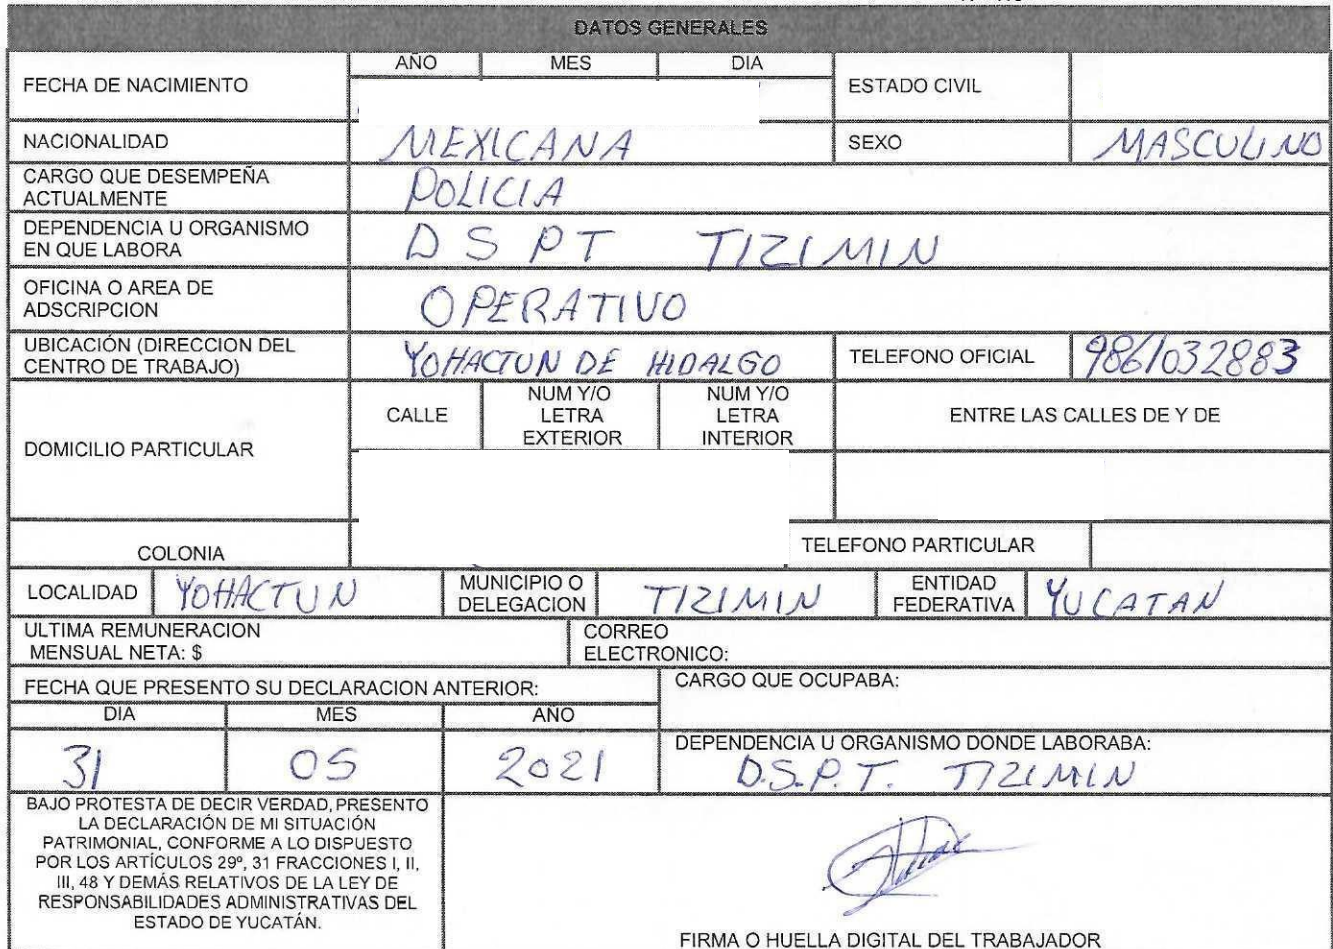 DATOS GENERALES
FECHA DE NACIMIENTO
AÑO MES DIA
ESTADO CIVIL
NACIONALIDAD MEXICANA SEXO MASCULINO
CARGO QUE DESEMPEÑA
ACTUALMENTE
POLICIA
DEPENDENCIA U ORGANISMO
EN QUE LABORA
D S P T TIZIMIN
OFICINA O AREA DE
ADSCRIPCION
OPERATIVO
UBICACIÓN (DIRECCION DEL
CENTRO DE TRABAJO)
YOHACTUN DE HIDALGO
TELEFONO OFICIAL 9861032883
DOMICILIO PARTICULAR
CALLE
NUM Y/O
LETRA
EXTERIOR
NUM Y/O
LETRA
INTERIOR
ENTRE LAS CALLES DE Y DE
COLONIA
TELEFONO PARTICULAR
LOCALIDAD YOHACTUN
MUNICIPIO O
DELEGACION
TIZIMIN
ENTIDAD
FEDERATIVA
YUCATAN
ULTIMA REMUNERACION
MENSUAL NETA: $
CORREO
ELECTRONICO:
FECHA QUE PRESENTO SU DECLARACION ANTERIOR:
CARGO QUE OCUPABA:
DIA MES AÑO
31 05 2021
DEPENDENCIA U ORGANISMO DONDE LABORABA:
D.S.P.T. TIZIMIN
BAJO PROTESTA DE DECIR VERDAD, PRESENTO
LA DECLARACIÓN DE MI SITUACIÓN
PATRIMONIAL, CONFORME A LO DISPUESTO
POR LOS ARTÍCULOS 29º, 31 FRACCIONES I, II,
III, 48 Y DEMÁS RELATIVOS DE LA LEY DE
RESPONSABILIDADES ADMINISTRATIVAS DEL
ESTADO DE YUCATÁN.
FIRMA O HUELLA DIGITAL DEL TRABAJADOR